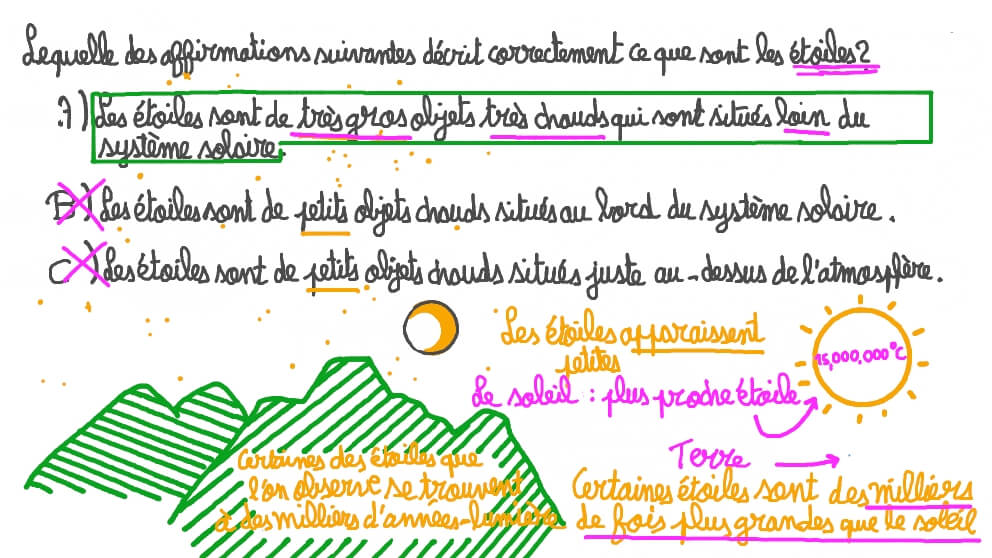 Lequelle des affirmations suivantes décrit correctement ce que sont les étoiles?
A) Les étoiles sont de très gros objets très chauds qui sont situés loin du
système solaire.
B) Les étoiles sont de petits objets chauds situés au bord du système solaire.
C) Les étoiles sont de petits objets chauds situés juste au-dessus de l'atmosphère.
Les étoiles apparaissent
petites
15,000,000°C
Le soleil : plus proche étoile
Terre
Certaines des étoiles que
l'on observe se trouvent
à des milliers d'années-lumière
Certaines étoiles sont des milliers
de fois plus grandes que le soleil